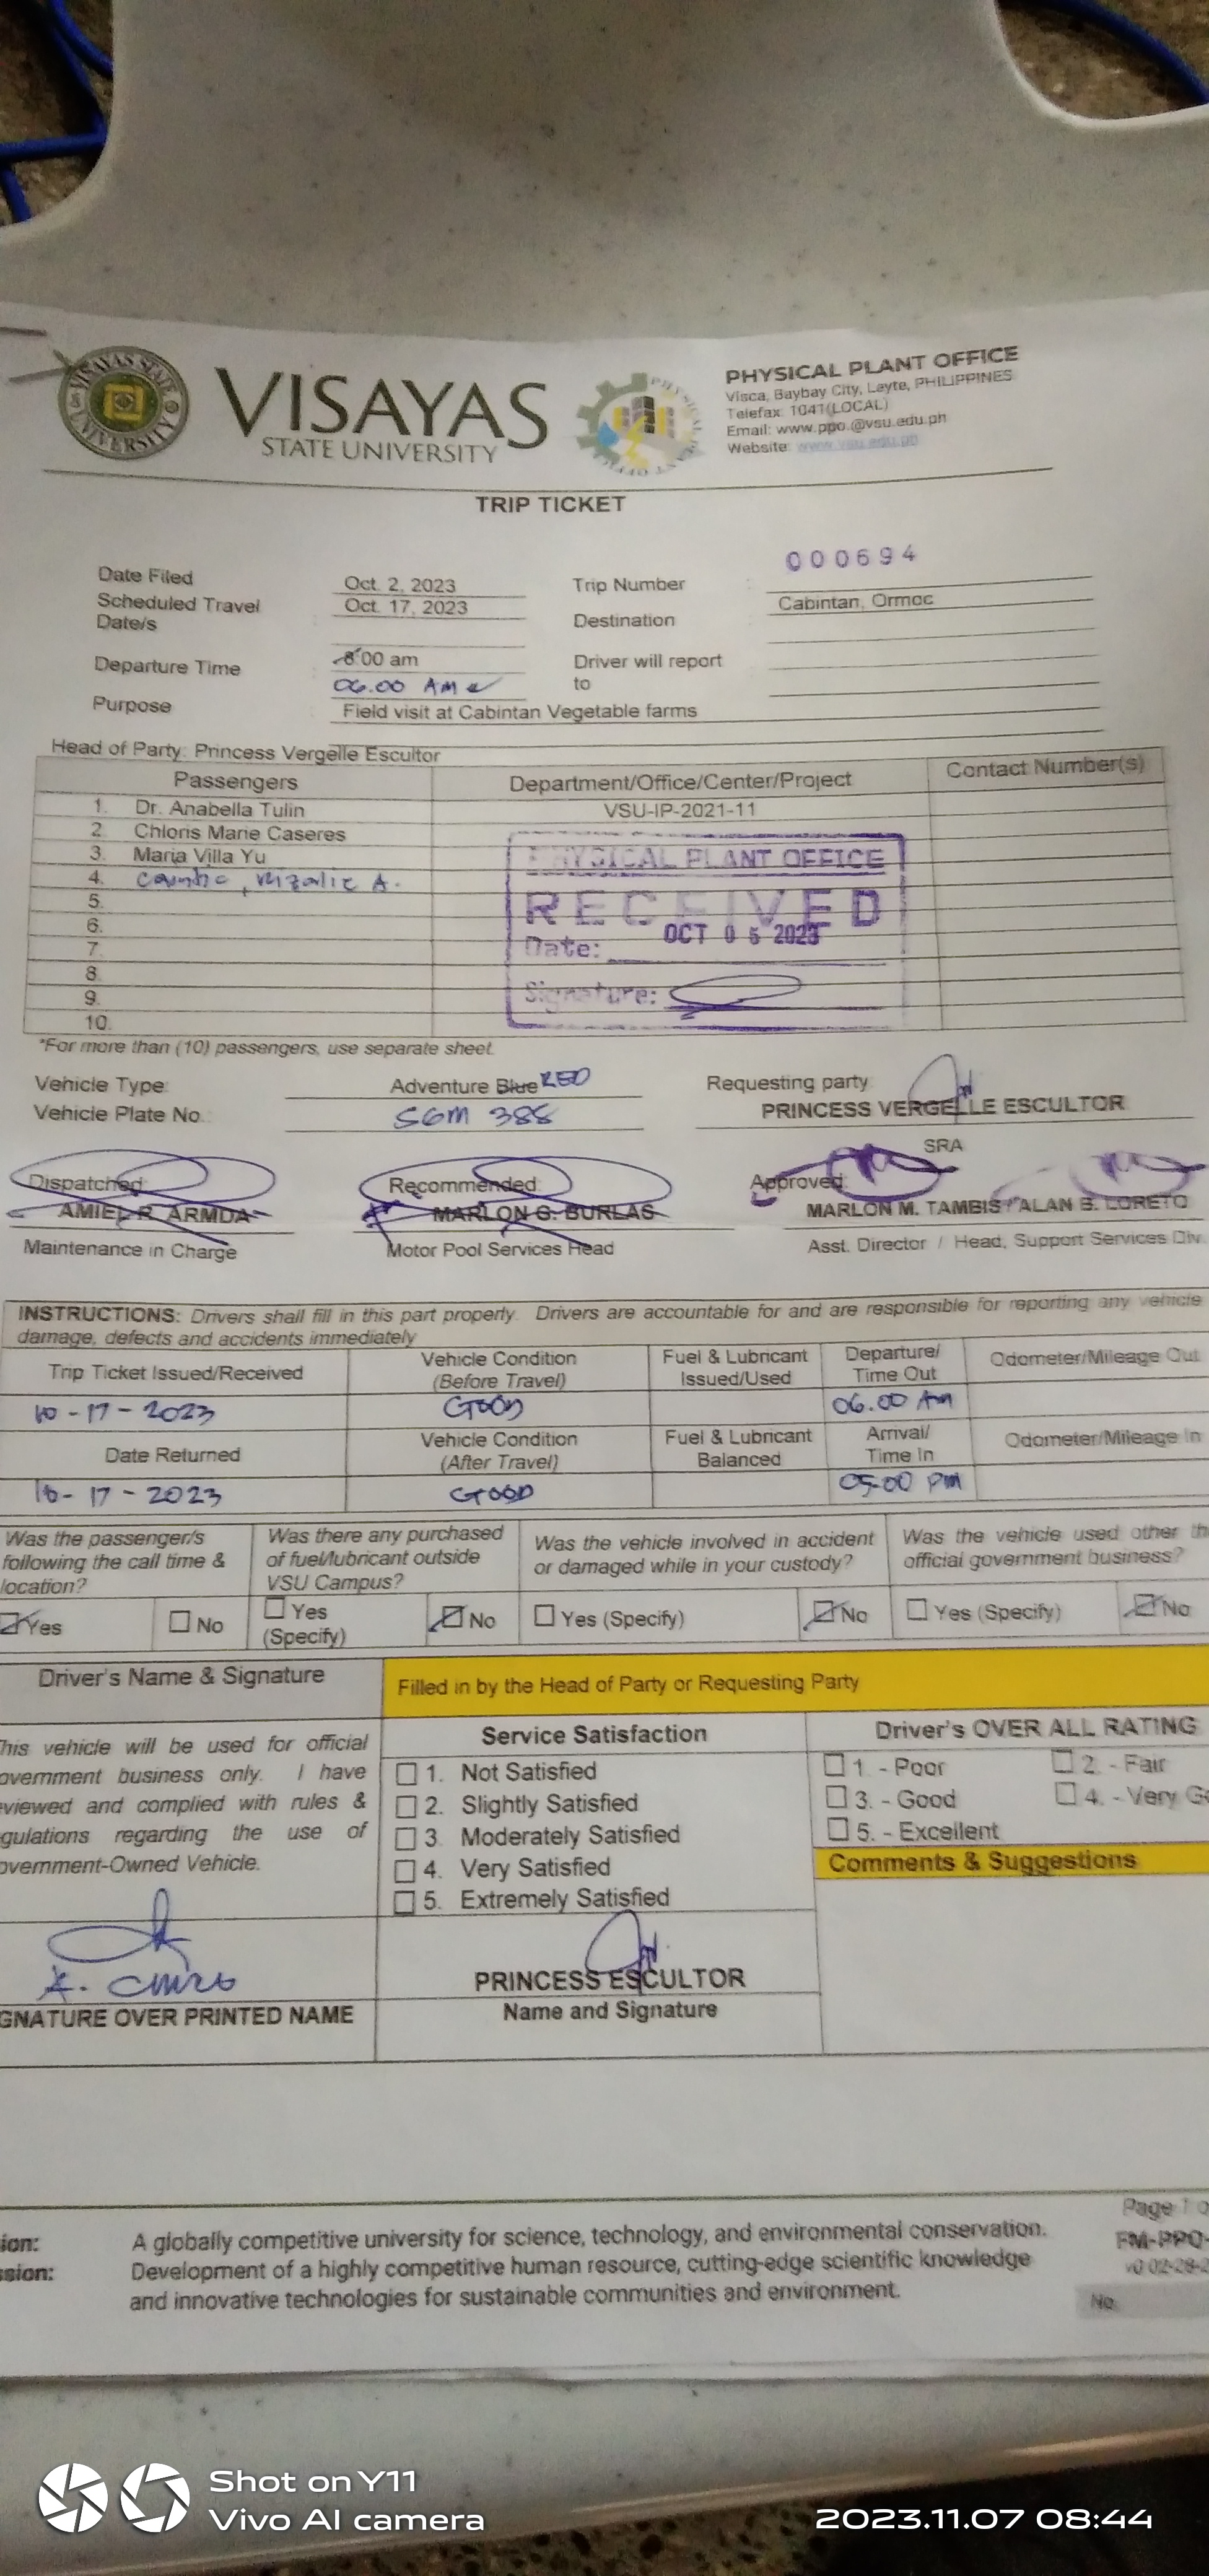 VISAYAS STATE UNIVERSITY
VISAYAS
STATE UNIVERSITY
PHYSICAL PLANT OFFICE
Visca, Baybay City, Leyte, PHILIPPINES
Telefax: 1041(LOCAL)
Email: www.ppo.@vsu.edu.ph
Website: www.vsu.edu.ph
TRIP TICKET
000694
Date Filed : Oct. 2, 2023 Trip Number :
Scheduled Travel Date/s : Oct. 17, 2023 Destination : Cabintan, Ormoc
Departure Time : 8:00 am Driver will report to :
06.00 AM
Purpose : Field visit at Cabintan Vegetable farms
Head of Party: Princess Vergelle Escultor
Passengers Department/Office/Center/Project Contact Number(s)
1. Dr. Anabella Tulin VSU-IP-2021-11
2 Chloris Marie Caseres
3. Maria Villa Yu
4. A.
5.
6.
7.
8.
9.
10.
PHYSICAL PLANT OFFICE
RECEIVED
Date: OCT 05 2023
Signature:
*For more than (10) passengers, use separate sheet.
Vehicle Type: Adventure Blue RED Requesting party
Vehicle Plate No.: SGM 388 PRINCESS VERGELLE ESCULTOR
SRA
Dispatched: Recommended: Approved:
AMIEL R. ARMDA MARLON G. BURLAS MARLON M. TAMBIS / ALAN B. LORETO
Maintenance in Charge Motor Pool Services Head Asst. Director / Head, Support Services Div.
INSTRUCTIONS: Drivers shall fill in this part properly. Drivers are accountable for and are responsible for reporting any vehicle
damage, defects and accidents immediately
Trip Ticket Issued/Received Vehicle Condition (Before Travel) Fuel & Lubricant Issued/Used Departure/ Time Out Odometer/Mileage Out
10-17-2023 GOOD 06.00 AM
Date Returned Vehicle Condition (After Travel) Fuel & Lubricant Balanced Arrival/ Time In Odometer/Mileage In
10-17-2023 GOOD 05:00 PM
Was the passenger/s following the call time & location? Was there any purchased of fuel/lubricant outside VSU Campus? Was the vehicle involved in accident or damaged while in your custody? Was the vehicle used other th official government business?
Yes No Yes (Specify) No Yes (Specify) No Yes (Specify) No
Driver's Name & Signature Filled in by the Head of Party or Requesting Party
Service Satisfaction Driver's OVER ALL RATING
his vehicle will be used for official
overnment business only. I have
viewed and complied with rules &
gulations regarding the use of
overnment-Owned Vehicle.
1. Not Satisfied
2. Slightly Satisfied
3. Moderately Satisfied
4. Very Satisfied
5. Extremely Satisfied
1. - Poor 2. - Fair
3. - Good 4. - Very Go
5. - Excellent
Comments & Suggestions
PRINCESS ESCULTOR
GNATURE OVER PRINTED NAME Name and Signature
Page 1 o
FM-PPO-
v0 02-28-2
No.
ion: A globally competitive university for science, technology, and environmental conservation.
ssion: Development of a highly competitive human resource, cutting-edge scientific knowledge
and innovative technologies for sustainable communities and environment.
Shot on Y11
Vivo AI camera
2023.11.07 08:44